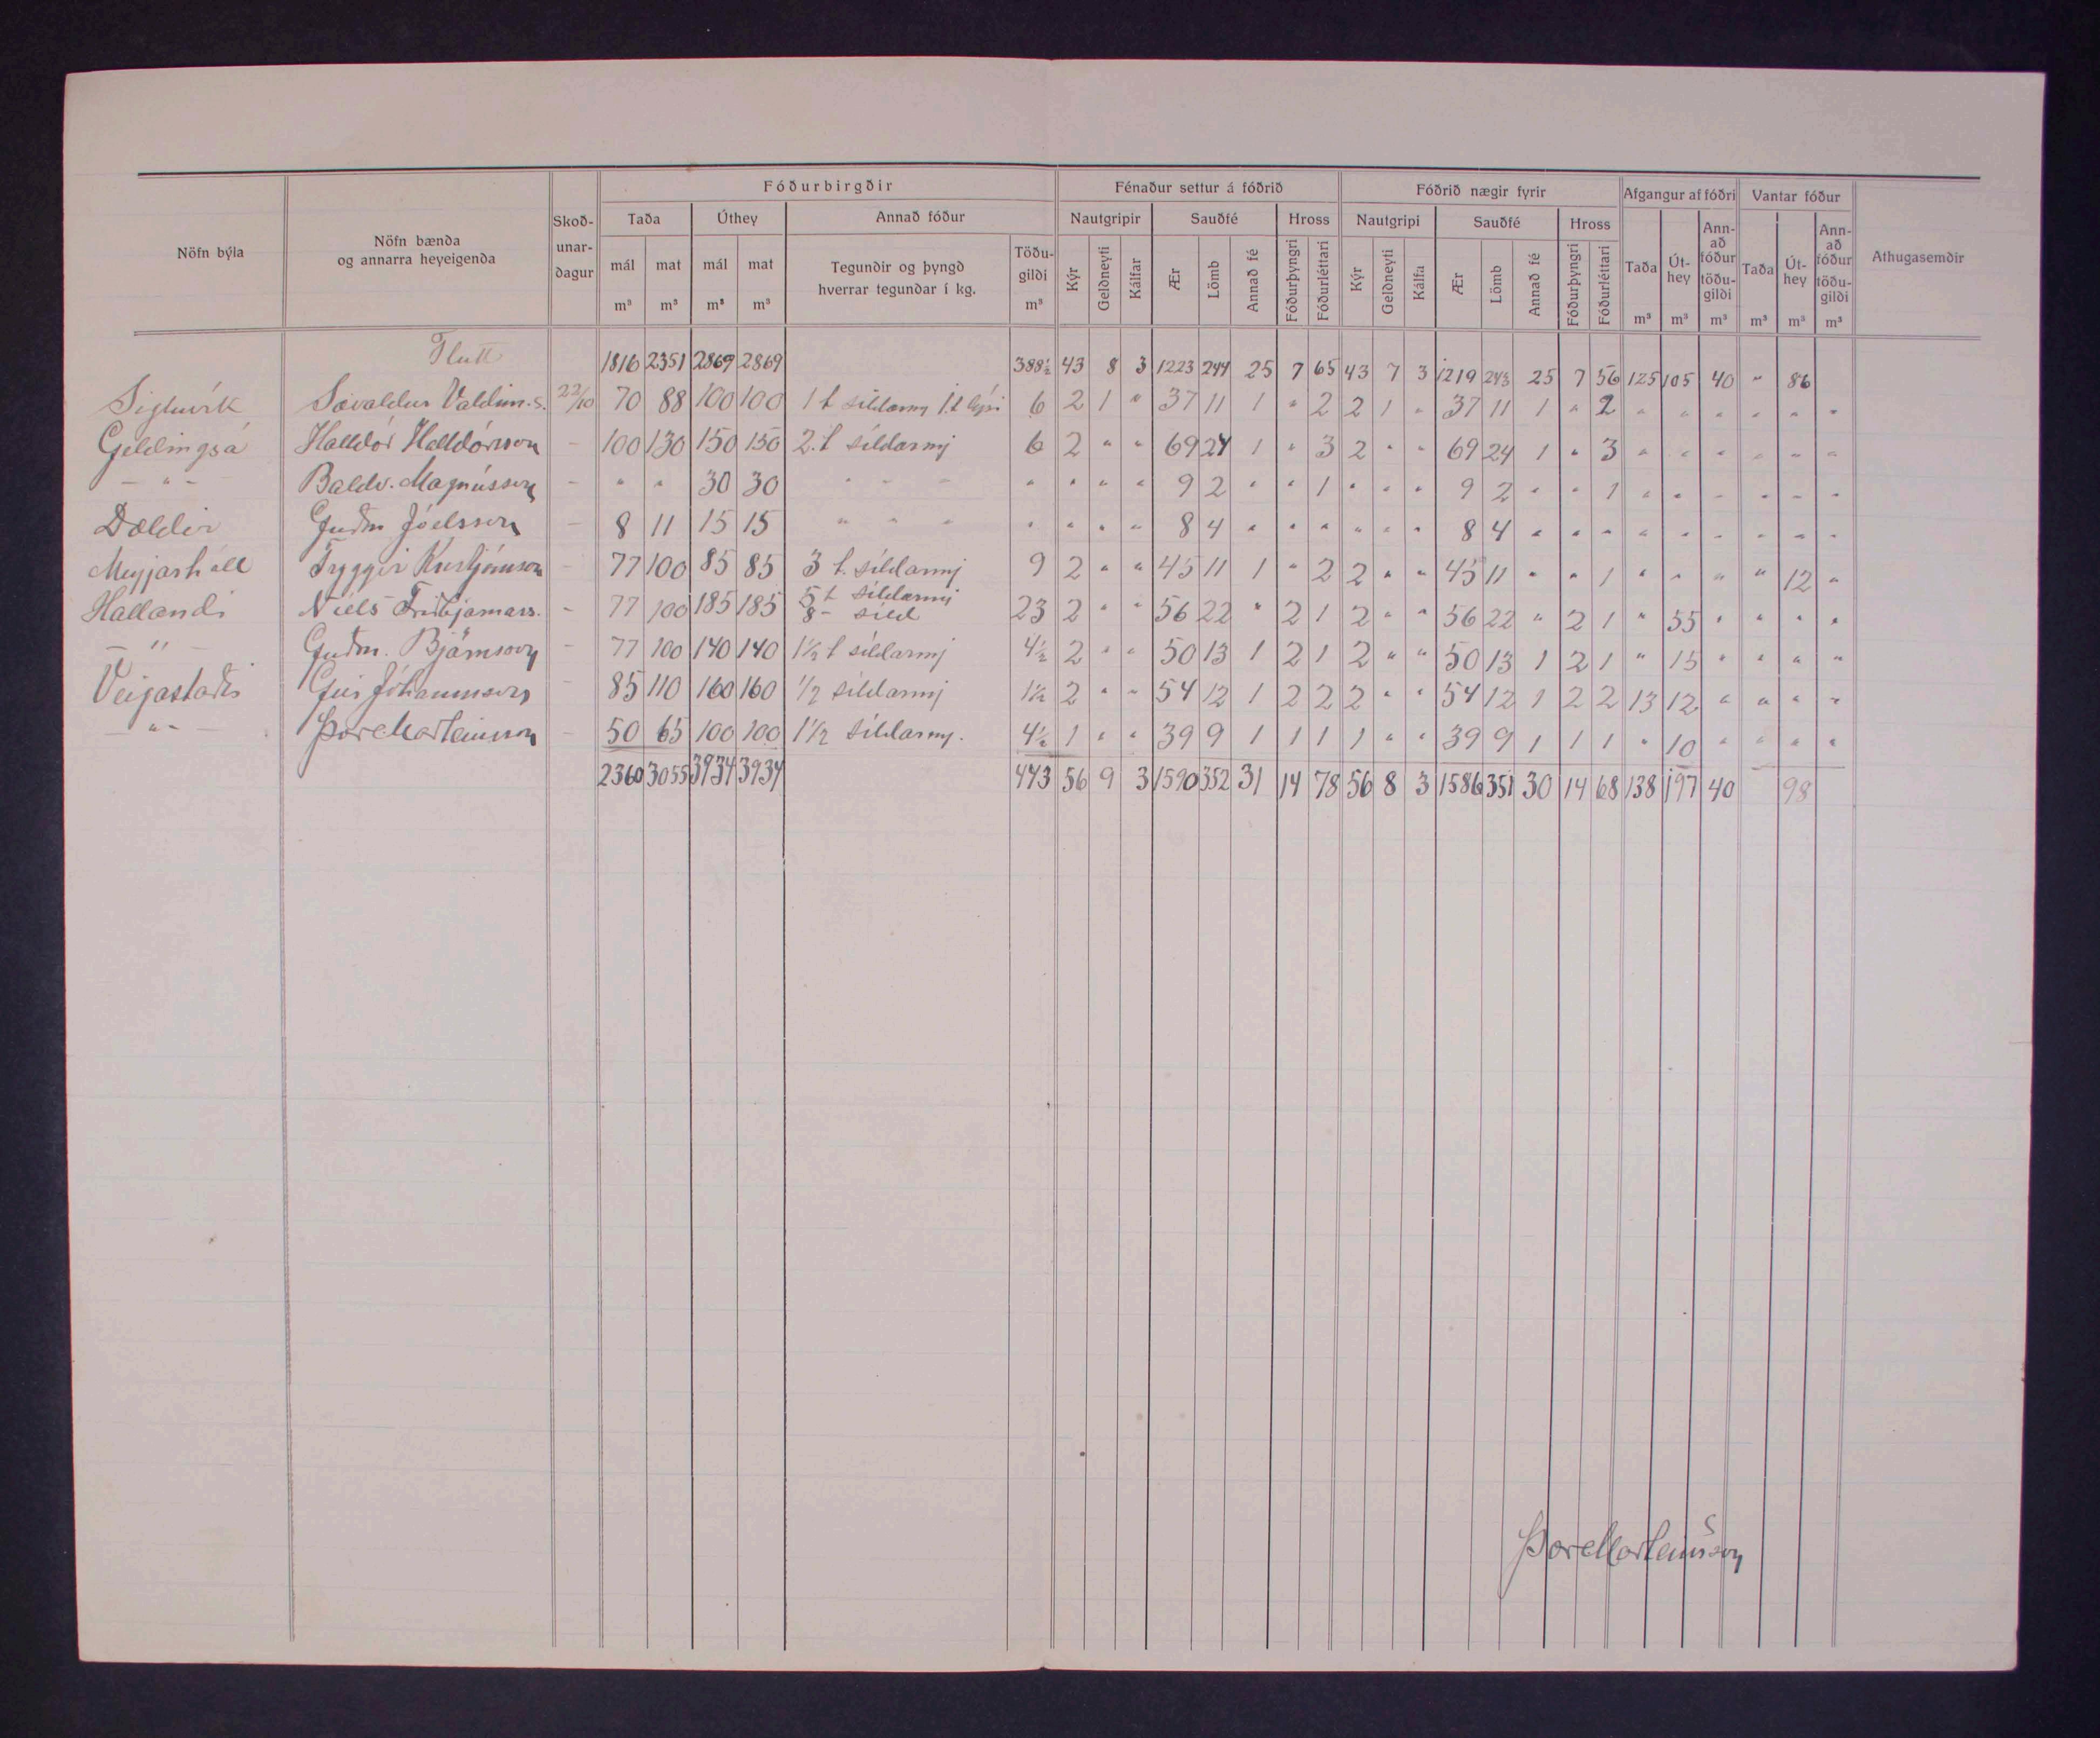 Fóðurbirgðir Fénaður settur á fóðrið Fóðrið nægir fyrir Afgangur af fóðri Vantar fóður
Nöfn býla Nöfn bænda og annarra heyeigenda Skoð-unar-dagur Taða Úthey Annað fóður Nautgripir Sauðfé Hross Nautgripi Sauðfé Hross Taða Út-hey Ann-að fóður töðu-gildi Taða Út-hey Ann-að fóður töðu-gildi Athugasemdir
mál mat mál mat Tegundir og þyngd hverrar tegundar í kg. Töðu-gildi Kýr Geldneyti Kálfar Ær Lömb Annað fé Fóðurþyngri Fóðurléttari Kýr Geldneyti Kálfa Ær Lömb Annað fé Fóðurþyngri Fóðurléttari
m³ m³ m³ m³ m³ m³ m³ m³ m³ m³ m³
Flutt 1816 2351 2869 2869 388½ 43 8 3 1223 244 25 7 65 43 7 3 1219 243 25 7 56 125 105 40 " 86
Sigluvík Sævaldur Valdim.s. 22/10 70 88 100 100 1 t síldarmj 1.t lýsi 6 2 1 " 37 11 1 " 2 2 1 " 37 11 1 " 2 " " " " " "
Geldingsá Halldór Halldórsson - 100 130 150 150 2.t síldarmj 6 2 " " 69 24 1 " 3 2 " " 69 24 1 " 3 " " " " " "
- " - Baldv. Magnússon - " " 30 30 " - - " " " " 9 2 " " 1 " " " 9 2 " " 1 " " " " " "
Dældir Guðm Jóelsson - 8 11 15 15 " " " " " " " 8 4 " " " " " " 8 4 " " " " " " " " "
Meyjarhóll Tryggvi Kristjánsson - 77 100 85 85 3 t. síldarmj 9 2 " " 45 11 1 " 2 2 " " 45 11 " " 1 " " " " 12 "
Hallandi Níels Friðbjarnars. - 77 100 185 185 5 t síldarmj 8 - síld 23 2 " " 56 22 " 2 1 2 " " 56 22 " 2 1 " 55 " " " "
- " - Guðm. Björnsson - 77 100 140 140 1½ t síldarmj 4½ 2 " " 50 13 1 2 1 2 " " 50 13 1 2 1 " 15 " " " "
Veigastaðir Geir Jóhannsson - 85 110 160 160 ½ síldarmj 1½ 2 " " 54 12 1 2 2 2 " " 54 12 1 2 2 13 12 " " " "
- " - Þorl Marteinsson - 50 65 100 100 1½ síldarmj. 4½ 1 " " 39 9 1 1 1 1 " " 39 9 1 1 1 " 10 " " " "
2360 3055 3934 3934 443 56 9 3 1590 352 31 14 78 56 8 3 1586 351 30 14 68 138 197 40 98
Þorl Marteinsson